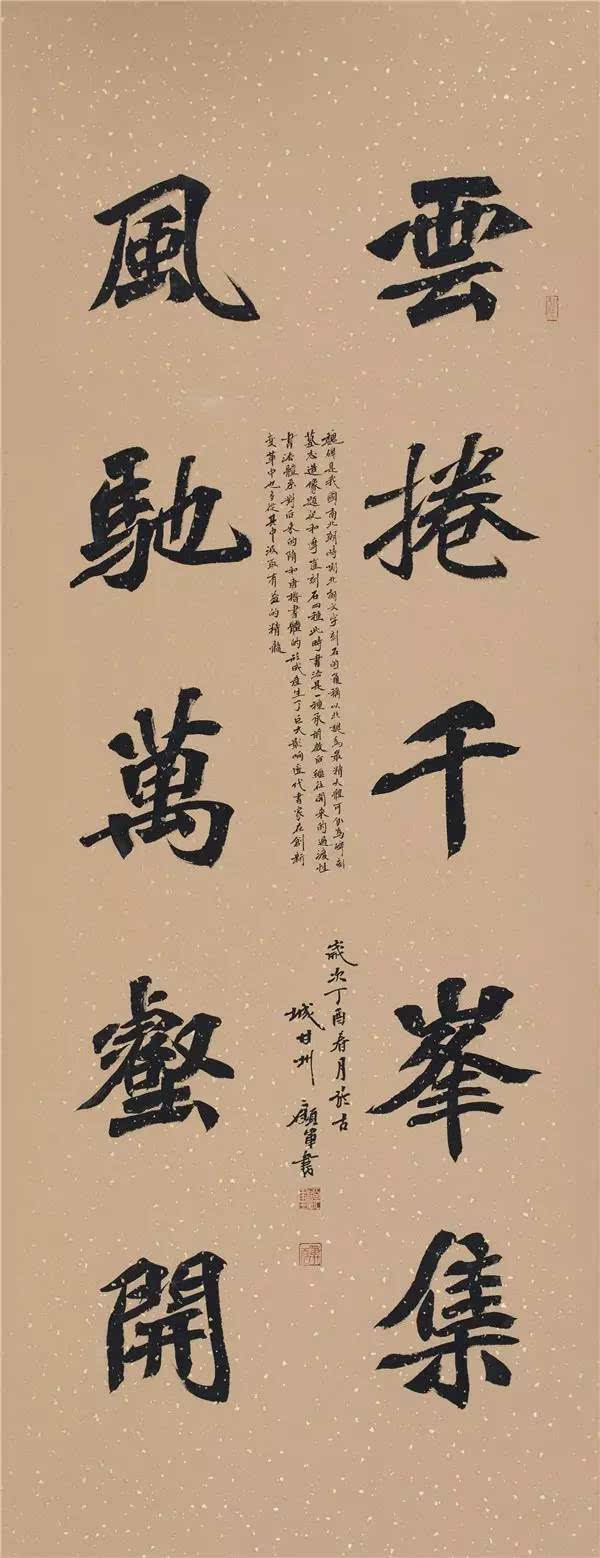 雲捲千峯集
風馳萬壑開
魏碑是我國南北朝時期北朝文字刻石的通稱以北魏為最精大體可分為碑刻
墓志造像題記和摩崖刻石四種此時書法是一種承前啟后繼往開來的過渡性
書法體系對后来的隋和唐楷書體的形成產生了巨大影响歷代書家在創新
變革中也多從其中汲取有益的精髓
歲次丁酉春月於古
城甘州 顧軍書